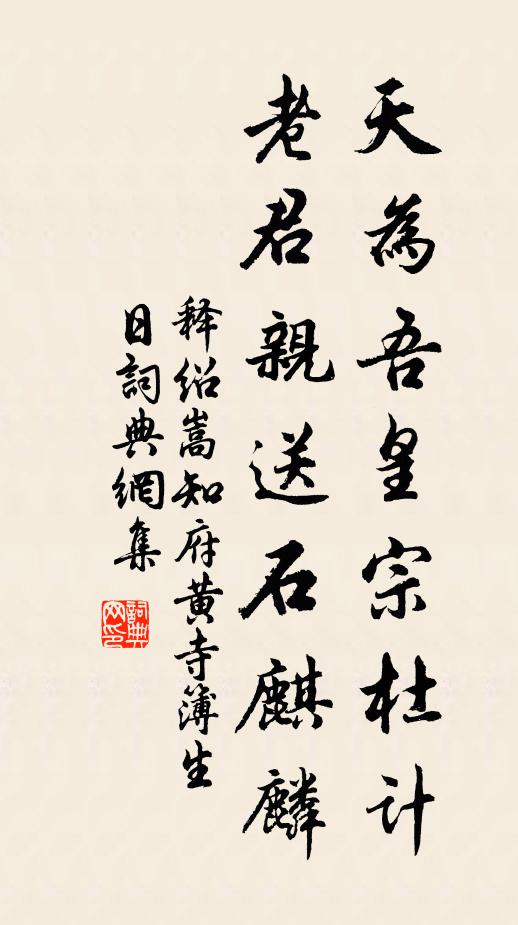 天為吾皇宗杜計
老君親送石麒麟
释紹嵩知府黄寺簿生
日詞典網集
詞典
网印